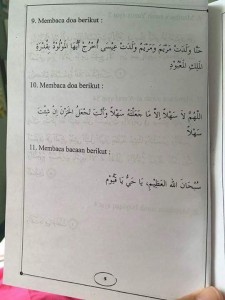 9. Membaca doa berikut :
حَنَّا وَلَدَتْ مَرْيَمَ وَمَرْيَمُ وَلَدَتْ عِيْسَى أُخْرُجْ أَيُّهَا الْمَوْلُوْدُ بِقُدْرَةِ
الْمَلِكِ الْمَعْبُوْدِ
10. Membaca doa berikut :
اَللّٰهُمَّ لاَ سَهْلاَ إِلاَّ مَا جَعَلْتَهُ سَهْلاً وَأَنْتَ تَجْعَلُ الْحَزْنَ إِنْ شِئْتَ
سَهْلاً
11. Membaca bacaan berikut :
سُبْحَانَ اللهِ الْعَظِيْمِ، يَا حَيُّ يَا قَيُّوْمُ